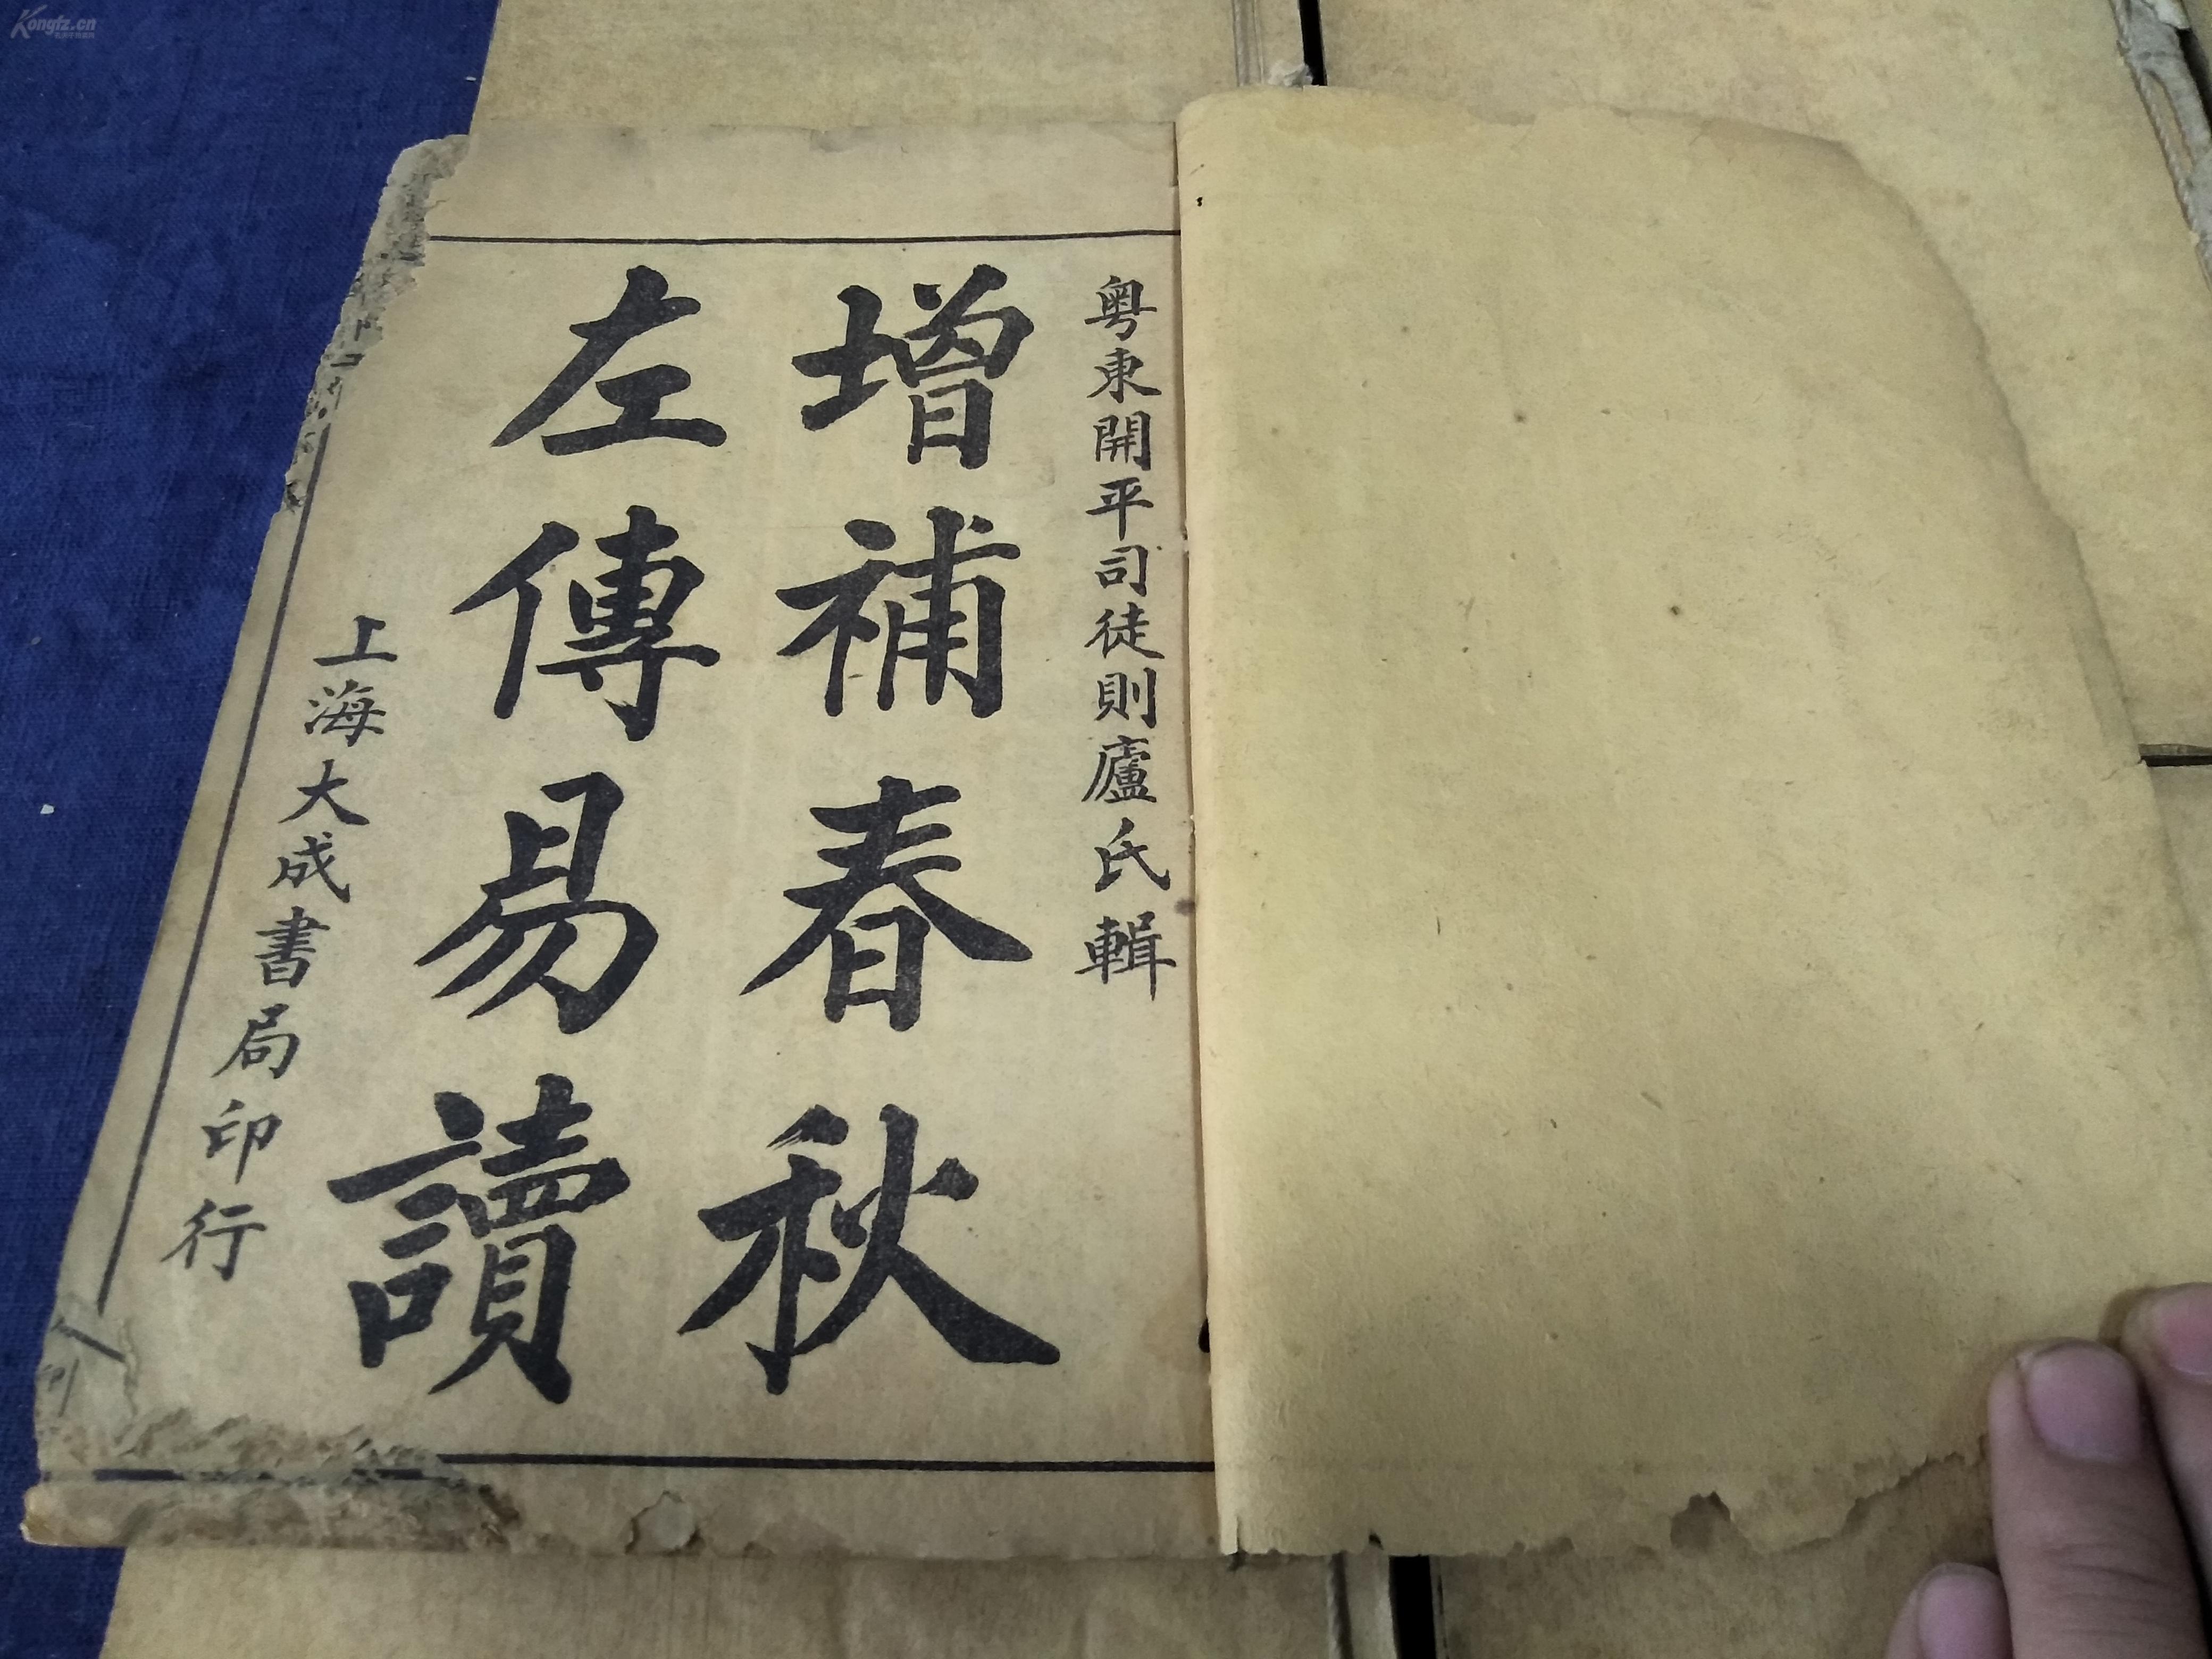 粤東開平司徒則廬氏輯
增補春秋
左傳易讀
上海大成書局印行
Kongfz.cn